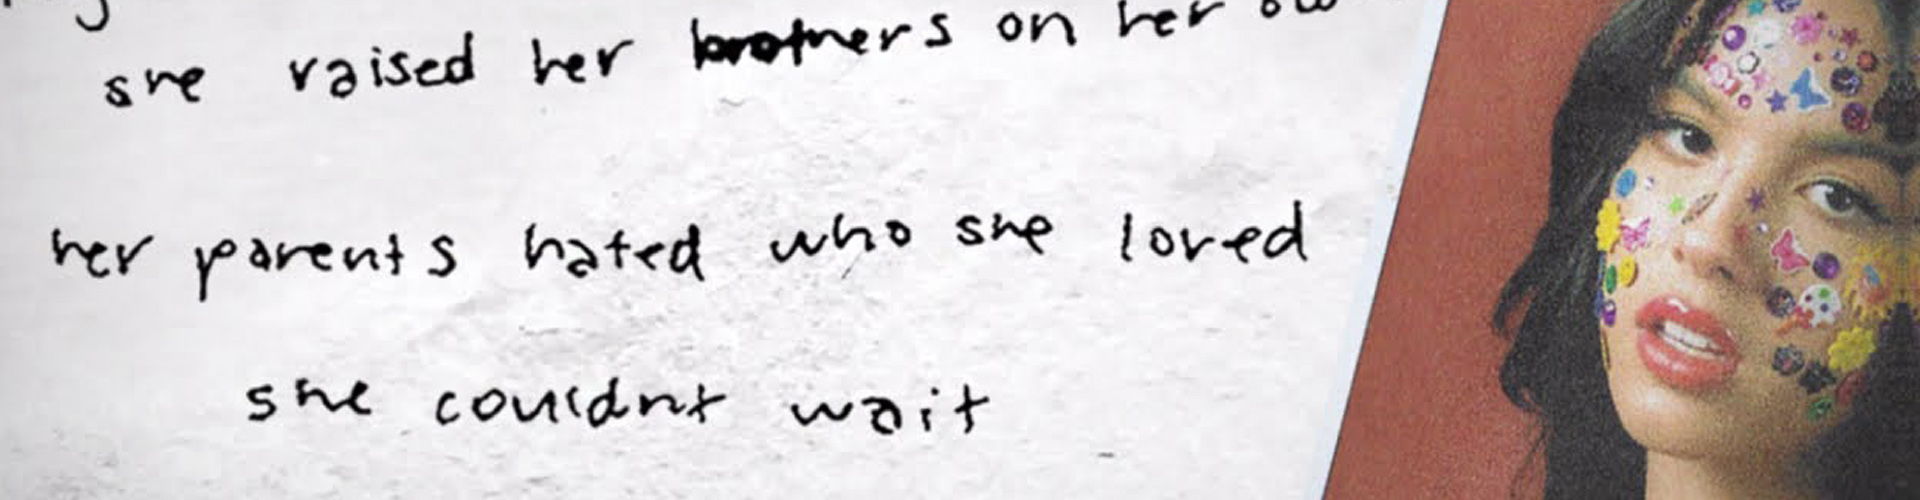 she raised her brothers on her ow
her parents hated who she loved
she couldnt wait